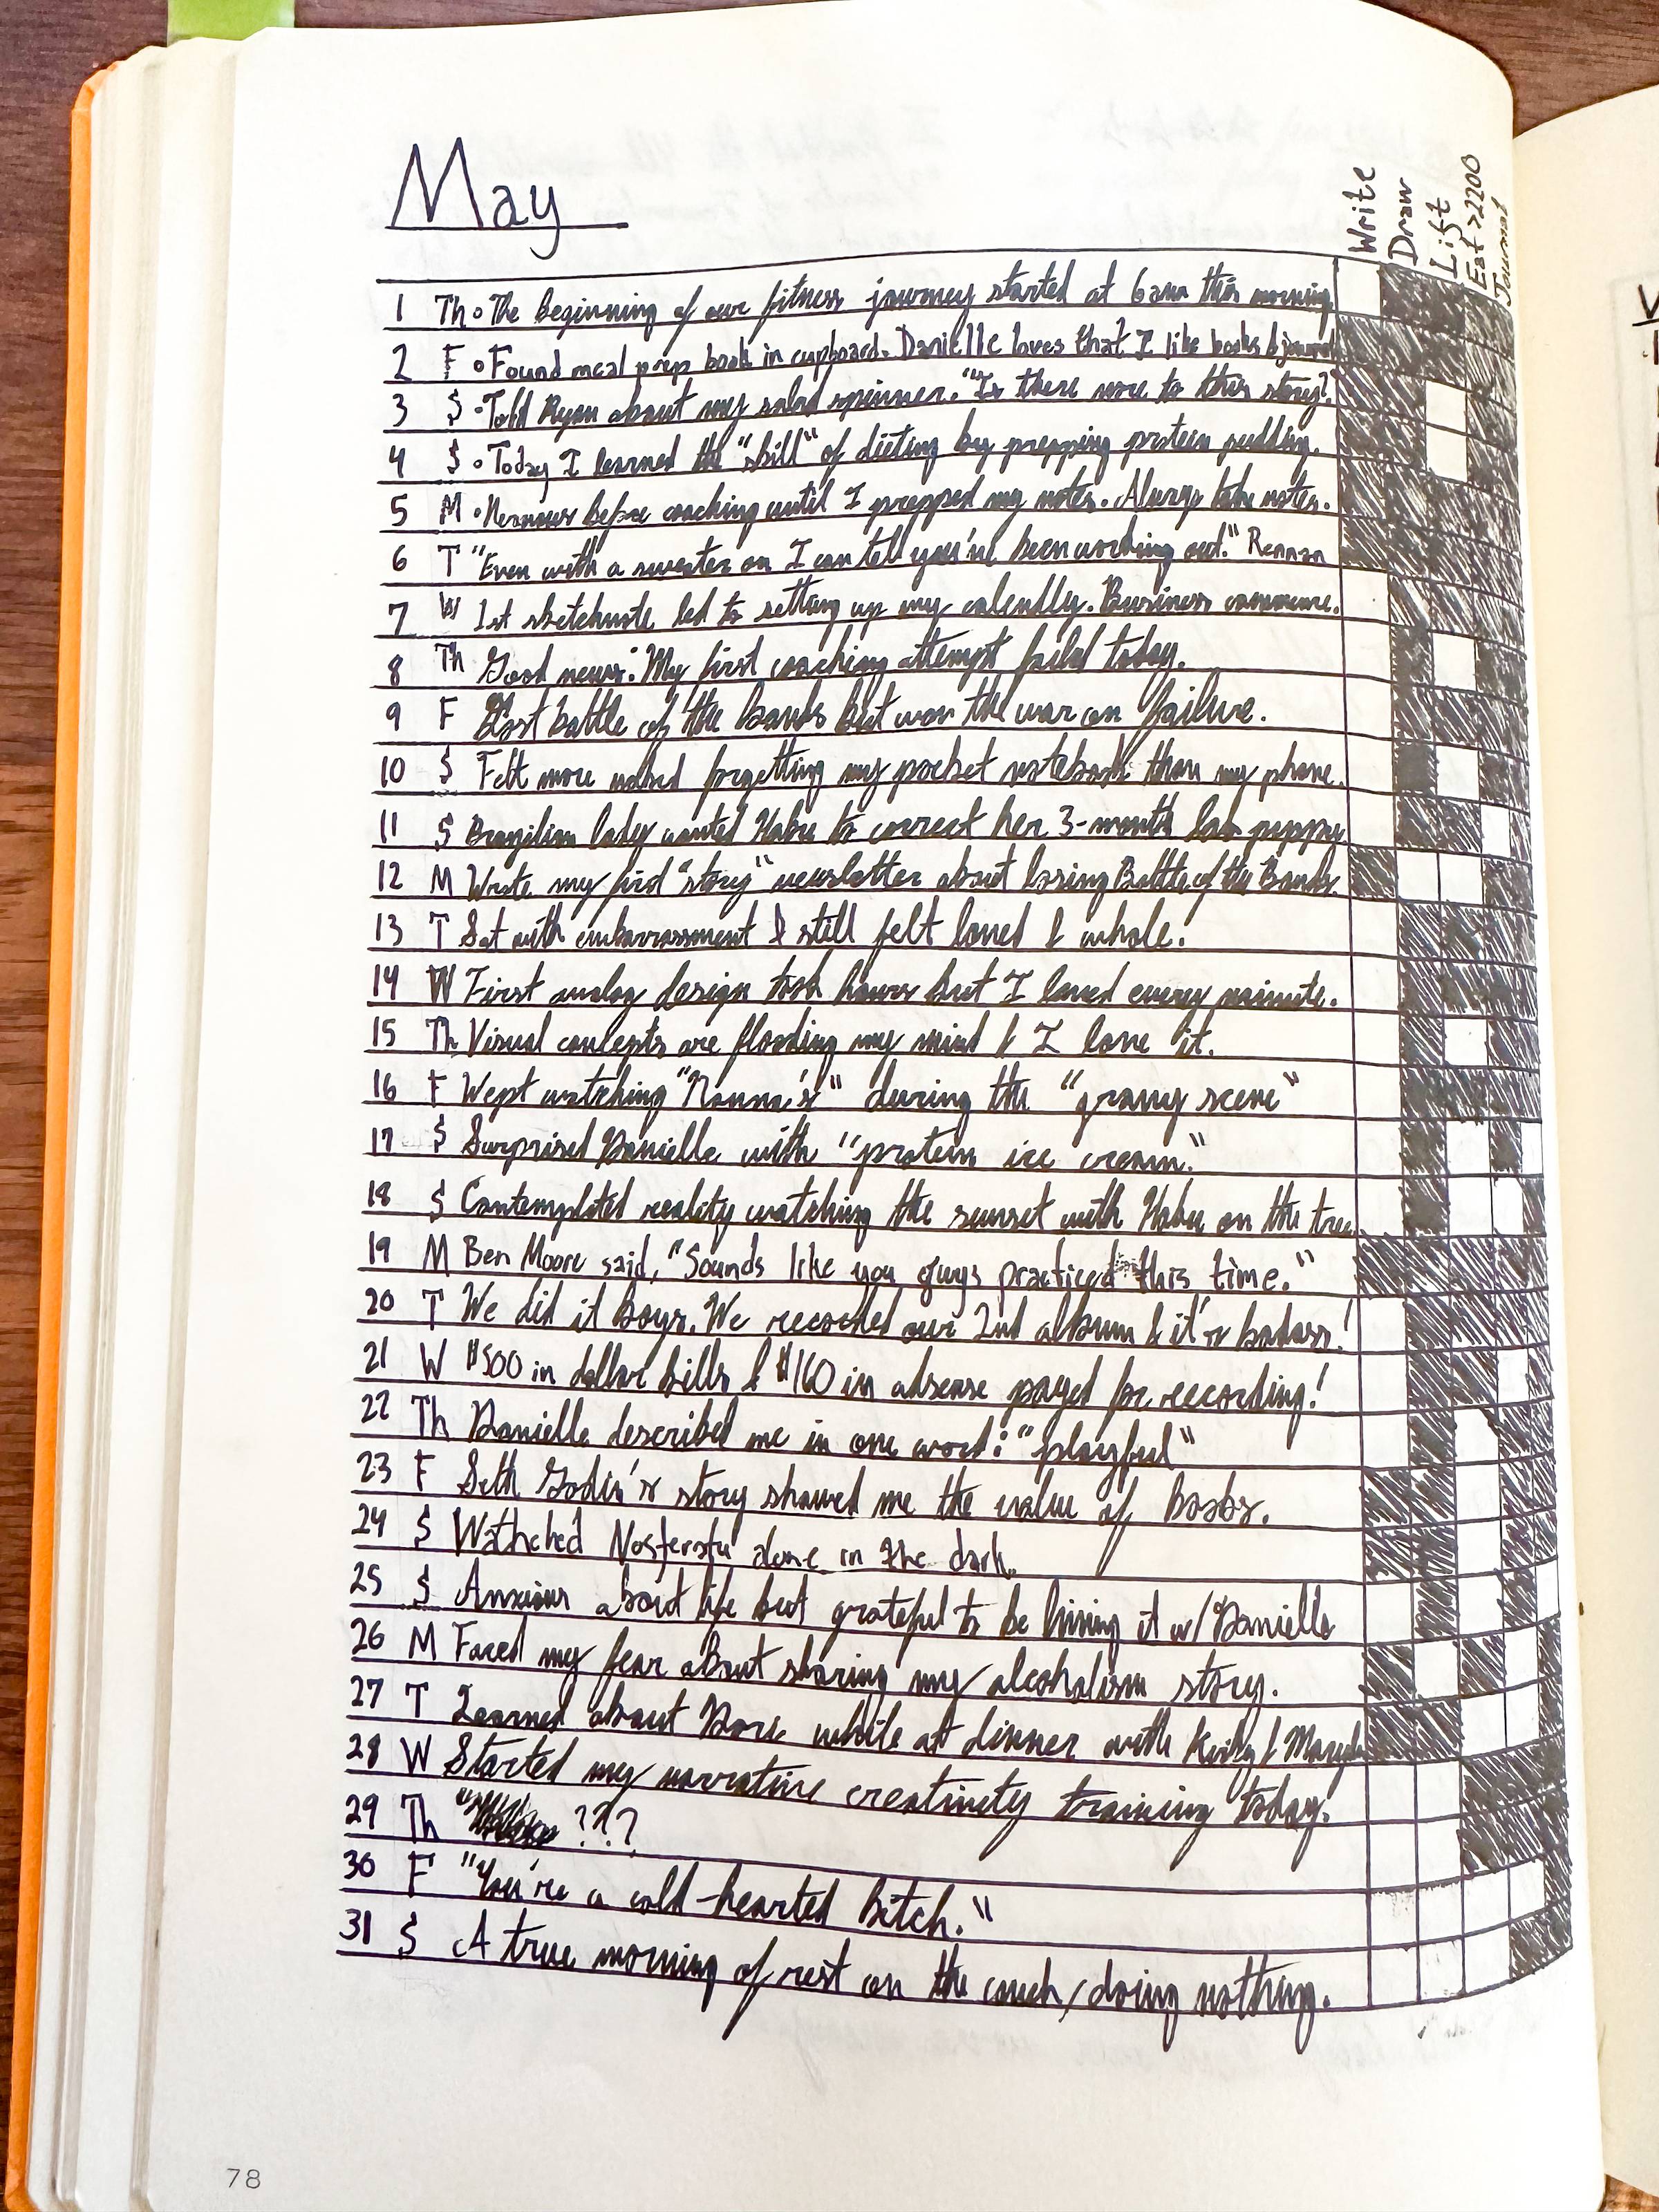 May
Write
Draw
Lift
Eat >2200
Journal
1 Th • The beginning of our fitness journey started at 6am this morning.
2 F • Found meal prep book in cupboard. Danielle loves that I like books &
3 S • Told Ryan about my salad spinner. "Is there more to this story?"
4 S • Today I learned the "skill" of dieting by prepping protein pudding.
5 M • Nervous before coaching until I prepped my notes. Always take notes.
6 T "Even with a sweater on I can tell you've been working out." Rennan
7 W 1st sketchnote led to setting up my calendly. Business commence.
8 Th Good news: My first coaching attempt failed today.
9 F Lost battle of the bands but won the war on failure.
10 S Felt more naked forgetting my pocket notebook than my phone.
11 S Brazilian lady wanted Habu to correct her 3-month lab puppy
12 M Wrote my first "story" newsletter about losing Battle of the Bands
13 T Sat with embarrassment & still felt loved & whole.
14 W First analog design took hours but I loved every minute.
15 Th Visual concepts are flooding my mind & I love it.
16 F Wept watching "Nonna's" during the "gravy scene"
17 S Surprised Danielle with "protein ice cream."
18 S Contemplated reality watching the sunset with Habu on the tree
19 M Ben Moore said, "Sounds like you guys practiced this time."
20 T We did it boys. We recorded our 2nd album & it's badass!
21 W $500 in dollar bills & $160 in adsense payed for recording!
22 Th Danielle described me in one word: "playful"
23 F Seth Godin's story showed me the value of
24 S Wathched Nosferatu alone in the dark.
25 S Anxious about life but grateful to be living it w/ Danielle
26 M Faced my fear about sharing my alcoholism story.
27 T Learned about while at dinner with &
28 W Started my narrative creativity training today.
29 Th " ???
30 F "You're a cold-hearted bitch."
31 S A true morning of rest on the couch, doing nothing.
78